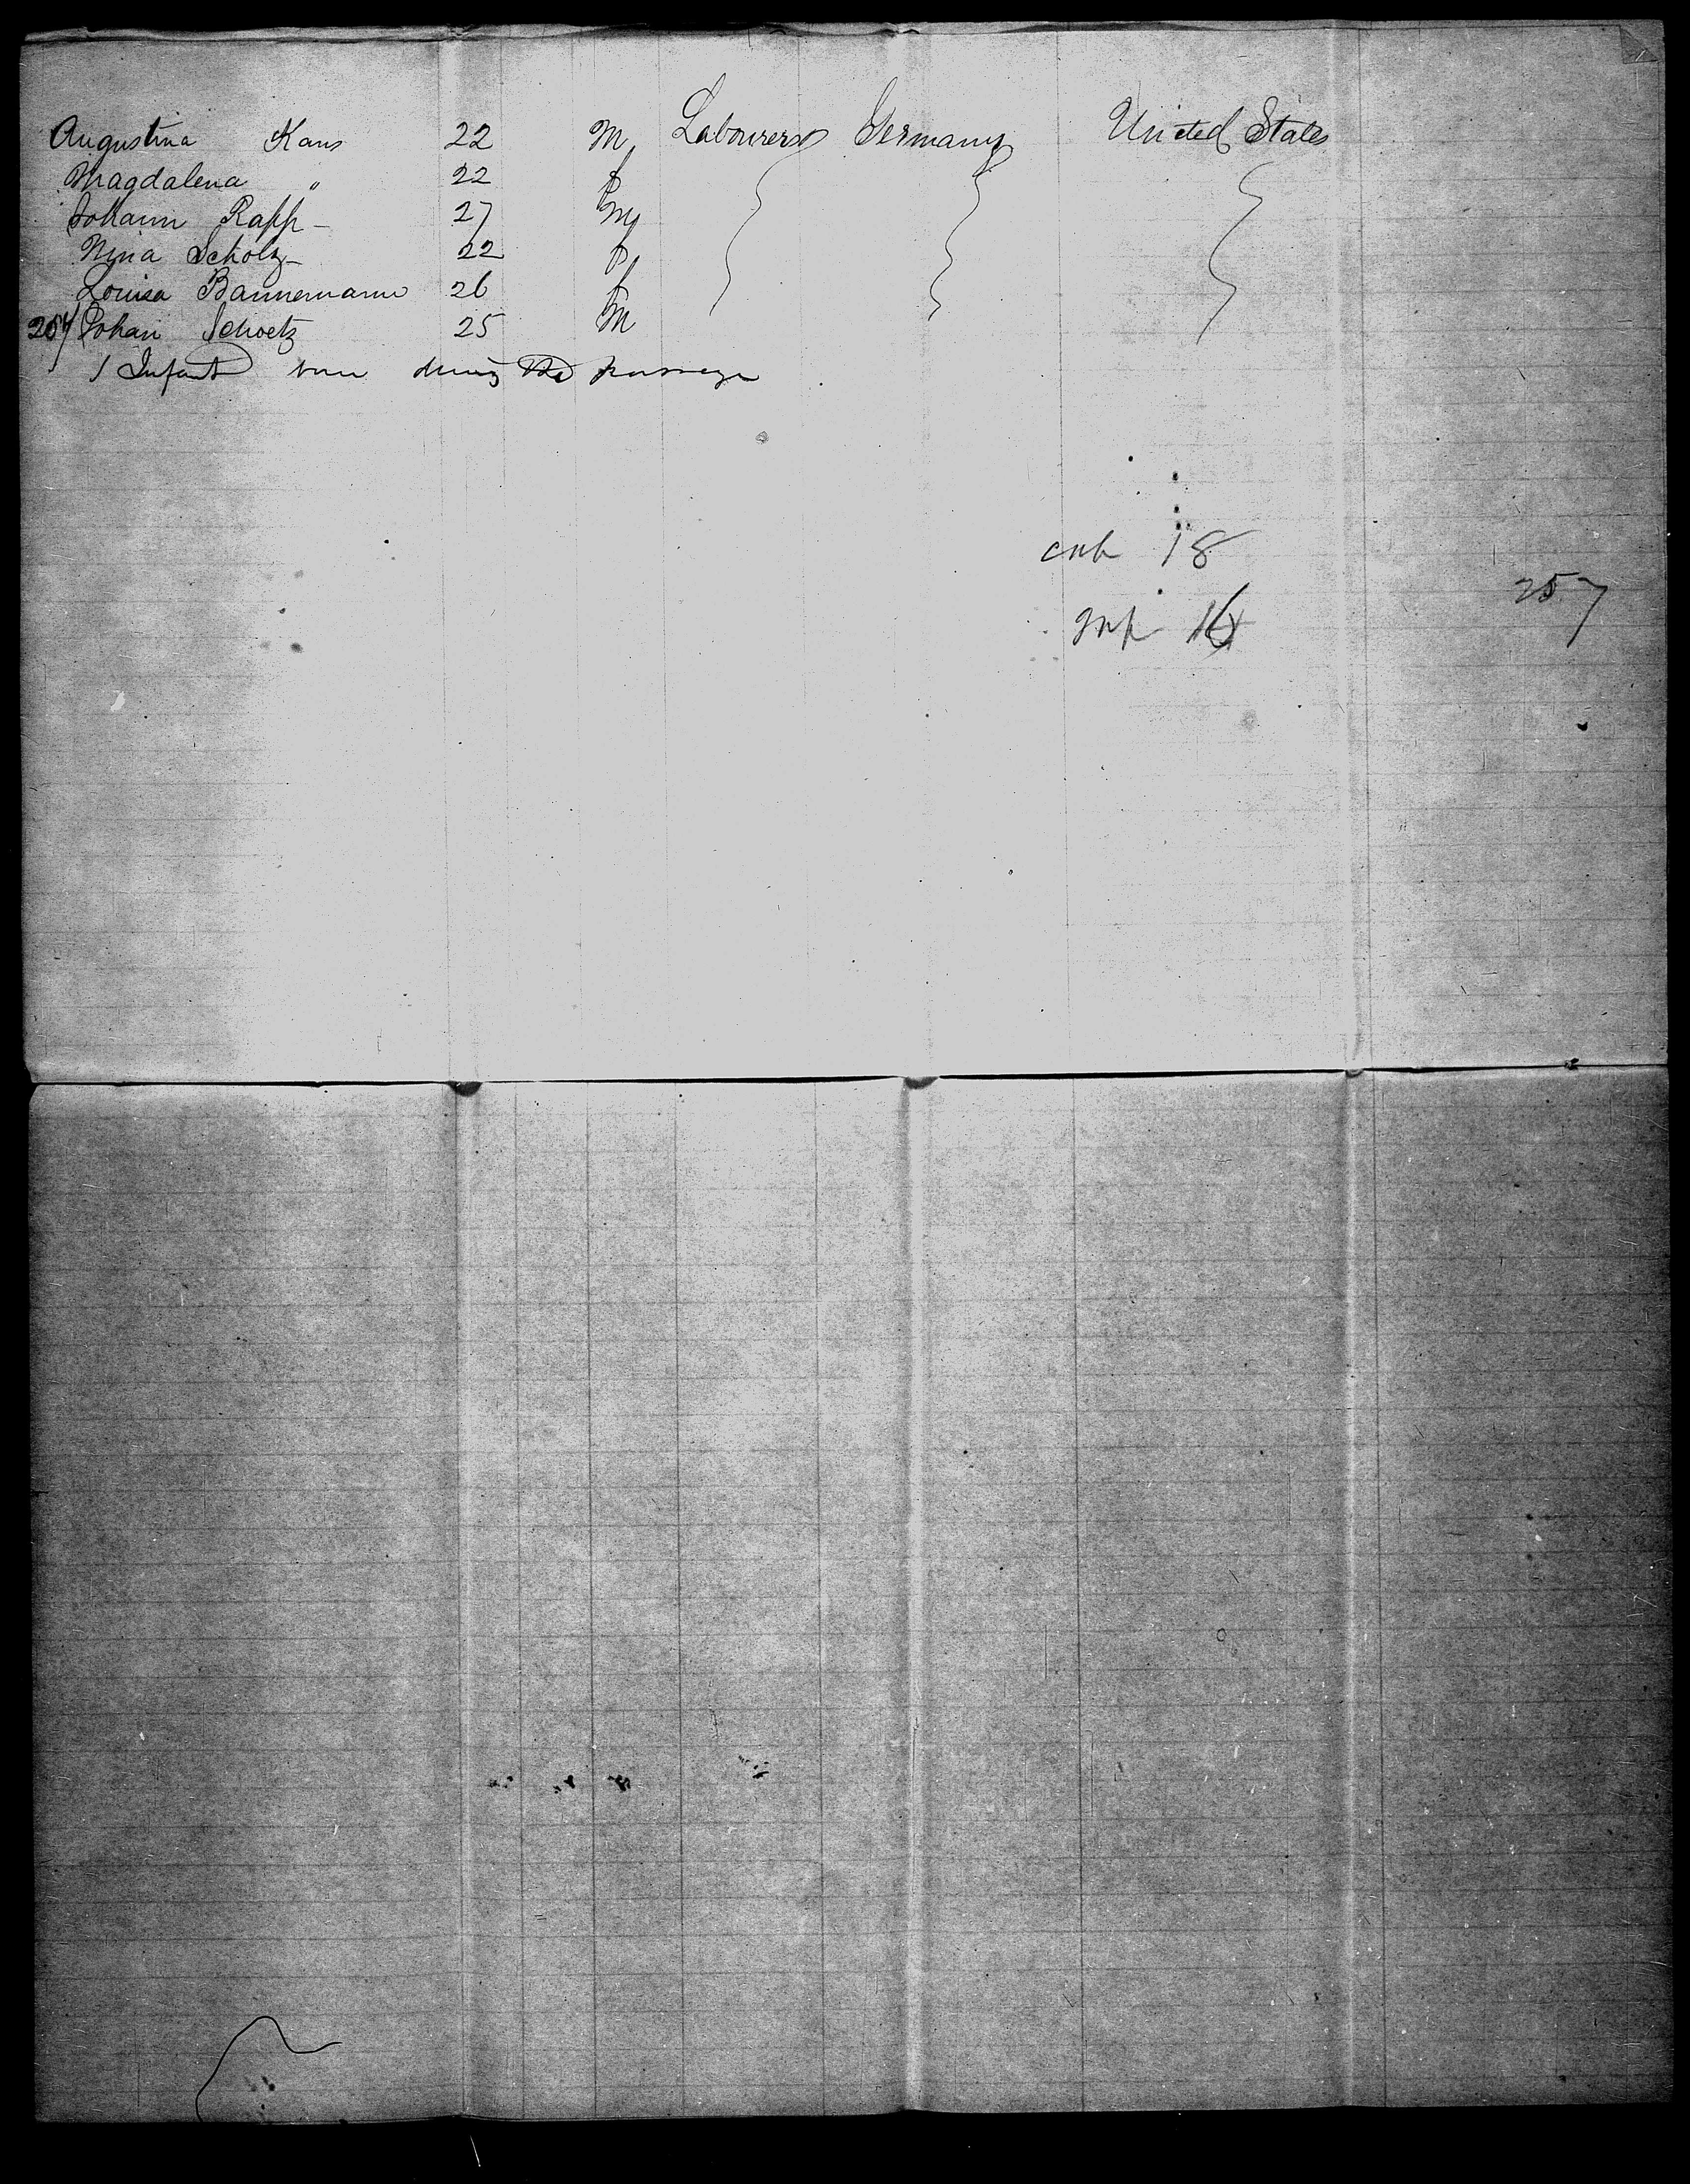 Augustina Kans 22 M Labourers Germany United States
Magdalena " 22 f
Johann Rapp - 27 M
Nina Scholz - 22 f
Louisa Bannemann 26 f
257 Johan Schoetz 25 M
1 Infant born during the passage
18
257
16